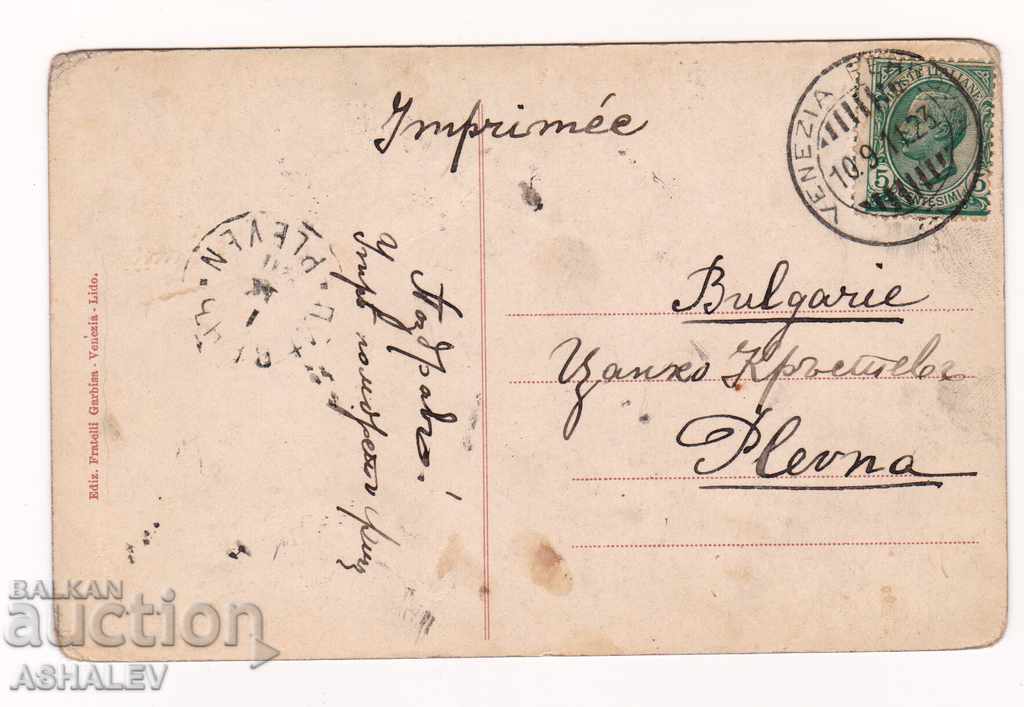 Imprimée
VENEZIA
10.9
POSTE ITALIANE
5
5
CENTESIMI
PLEVEN
Поздрави!
Bulgarie
Цанко Кръстевъ
Plevna
Ediz. Fratelli Garbisa - Venezia - Lido.
BALKAN
auction
ASHALEV